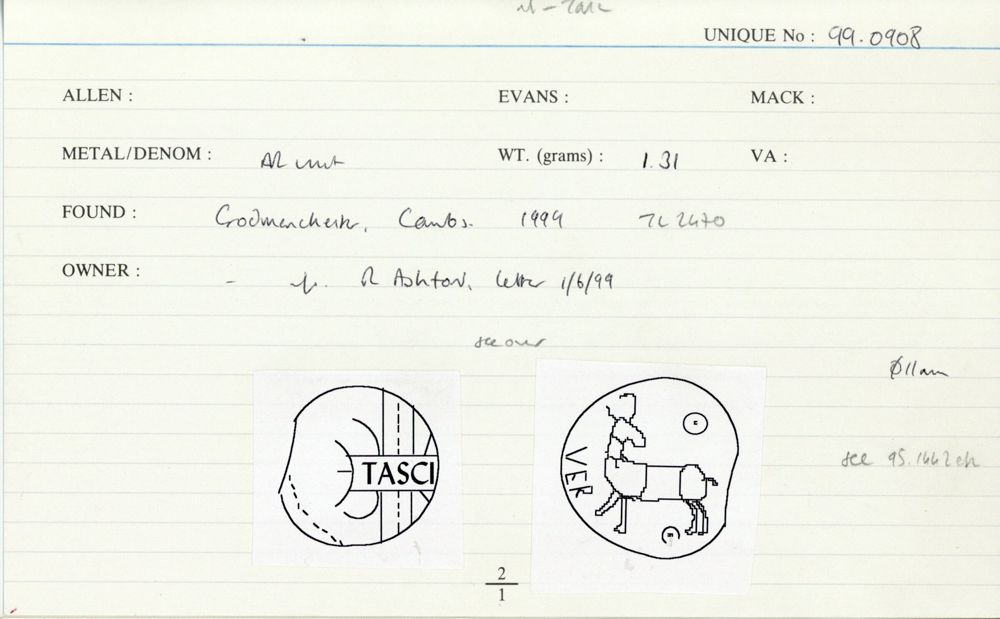 UNIQUE No : 99.0908
ALLEN : EVANS : MACK :
METAL/DENOM : AR unit WT. (grams) : 1.31 VA :
FOUND : Godmanchester, Cambs. 1999 TL 2470
OWNER : - R Ashton, letter 1/6/99
see over
Ø11mm
TASCI
VER
see 95.1442
2
1